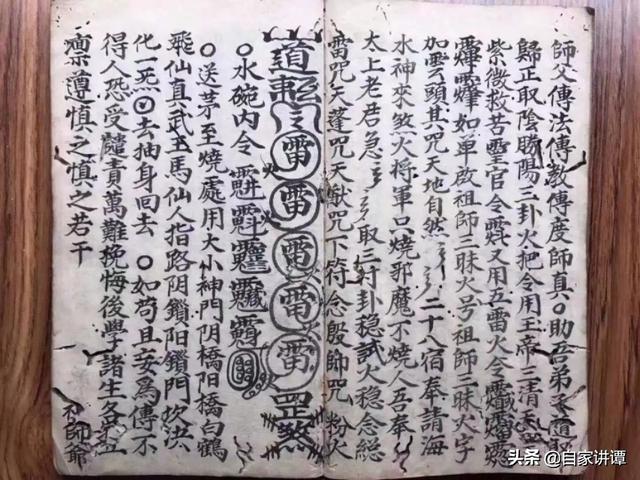 師父傳法傳教傳度師真〇助吾弟子道
歸正取陰勝陽三卦火把令用王帝三清天
紫微救苦灵官令又用五雷火令
如单啟祖師三昧火号祖師三昧火字
加雲頭其咒天地自然二十八宿奉請海
水神來煞火將軍只燒邪魔不燒人吾奉
太上老君急取三封卦稳試火稳念総
雷咒天蓬咒天猷咒下符念殷師咒粉火
道雷雷雷雷雷罡煞
〇水碗内令
〇送茅至燒處用大小神門阴橋阳橋白鶴
飛仙真武玉馬仙人指路阴鎖阳鎖門
化一炁去抽身回去〇如苟且妄為傳不
得人恐受責萬難挽悔後學諸生各
禀遵慎之慎之若干
祖師爺
头条 @自家讲谭